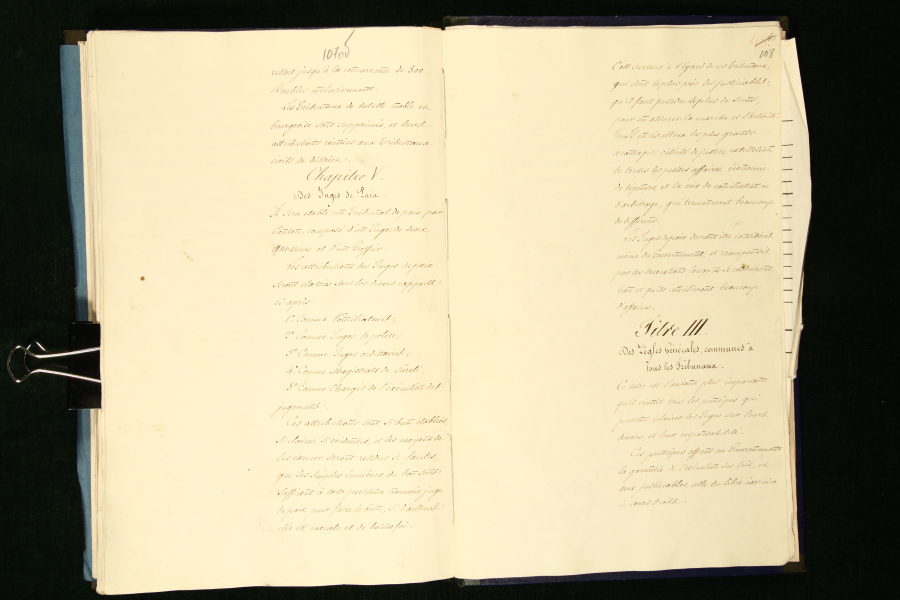 107 d
ressort jusqu'à la concurrence de 500
Roubles inclusivement.
Les Tribunaux de taille noble et
bourgeoise sont supprimés, et leurs
attributions remises aux Tribunaux
civils de district.
Chapitre V.
Des Juges de Paix.
Il sera établi un Tribunal de paix par
Canton, composé d'un Juge, de deux
et d'un Greffier.
Les attributions des Juges de paix
seront classées sous les divers rapports
ci-après:
1° Comme Conciliateurs;
2° Comme Juges de police;
3° Comme Juges ordinaires;
4° Comme Magistrats de Sûreté;
5° Comme Chargés de l'exécution des
jugements.
Ces attributions sont si bien établies,
si claires, si évidentes, et les moyens de
les exercer seront rendus si faciles,
que les simples lumières du bon sens
suffiront à toute personne nommée juge
de paix pour faire le bien, si d'ailleurs
elle est morale et de bonne foi.
108
C'est surtout à l'égard de ces Tribunaux,
qui sont le plus près des justiciables,
qu'il faut prendre le plus de soins,
pour en assurer la marche et l'activité.
Il en résultera les plus grands
avantages: célérité de justice, extinction
de toutes les petites affaires, économie
de dépenses, et la voie de conciliation ou
d'arbitrage, qui terminera beaucoup
de différents.
Les Juges de paix devront être considérés
même du Gouvernement et récompensés
par des décorations lorsqu'ils se conduiront
bien et qu'ils concilieront beaucoup
d'affaires.
Titre III.
Des Règles Générales, communes à
tous les Tribunaux.
Ce titre est d'autant plus important
qu'il réunit tous les principes qui
peuvent éclairer les Juges sur leurs
devoirs et leur responsabilité.
Ces principes offrent au Gouvernement
la garantie de l'exécution des lois, et
aux justiciables, celle du libre exercice
de leurs droits.